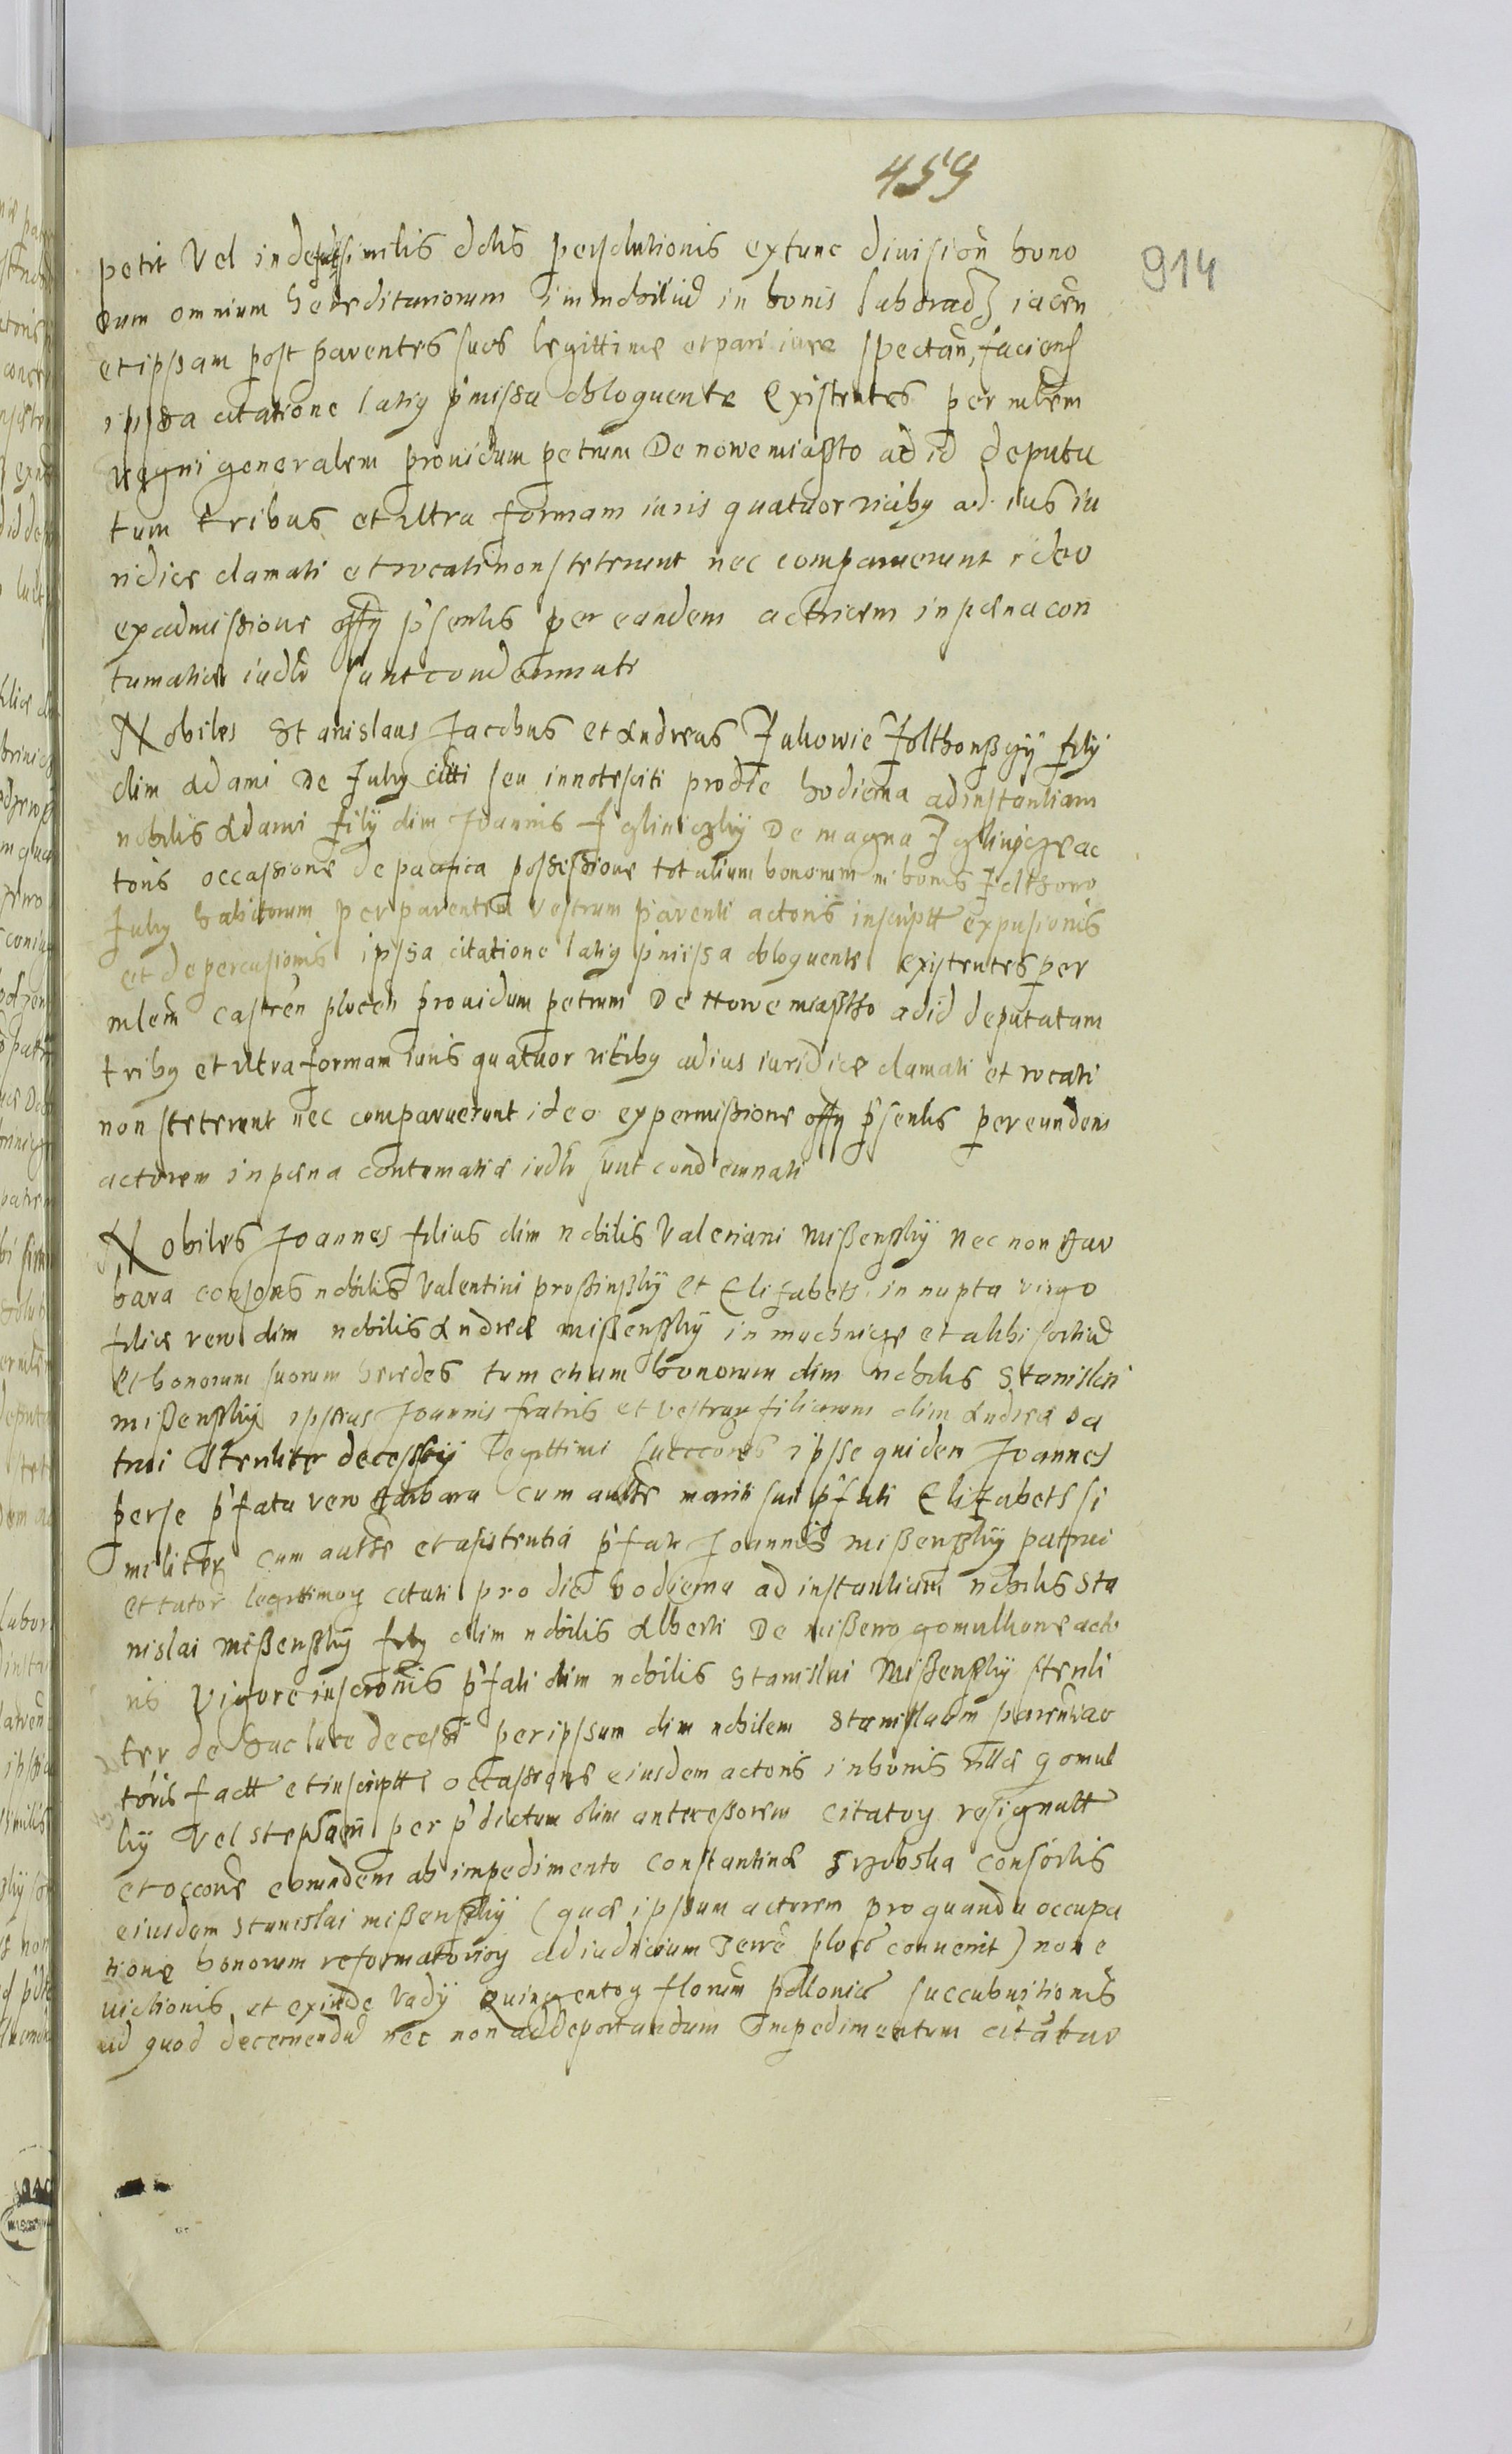 459
914
petit vel in defectu similis dotis persolutionis extunc division bono
rum omnium hereditariorum immobiliu in bonis Luboradz iacen
et ipsam post parentes suos legittime et pari iure spectan, faciend
ipssa citatione latiq pmissa obloquente Existentes per mlem
regni generalem prouidum petrum De nowemiasto ad id deputa
tum tribus et ultra formam iuris quatuor vicibq ad ius iu
ridice clamati et vocati non steterunt nec comparuerunt ideo
ex admissione offy psentis per eandem actricem in pæna con
tumatiæ iudlr sunt condemnati
Nobiles Stanislaus Jacobus et Andreas filij
olim Adami De citti seu innotesciti pro die hodierna ad instantiam
nobilis Adami filij olim Joannis De magna ac
toris occassione de pacifica possessione totalium bonorum in bonis
habitorum per parentem vestrum parenti actoris inscriptt expusionis
et de percusionis ipssa citatione latiq pmissa obloquente existentes per
mlem castren plocen prouidum petrum De Nowemiastho ad id deputatam
tribq et ultra formam iuris quatuor vicibq ad ius iuridice clamati et vocati
non steterunt nec comparuerunt ideo ex permissione offy psentis per eundem
actorem in pæna contumatiæ iudlr sunt condemnati
Nobiles Joannes filius olim nobilis Valeriani Mißenskij nec non Bar
bara consors nobilis Valentini proßinskij et Elizabeth in nupta virgo
filiæ vero olim nobilis Andreæ mißenskij in et alibi sortiu
et bonorum suorum heredes tum etiam bonorum olim nobilis Stanislai
mißenskij ipssius Joannis fratris et vestrar filiarum olim Andreæ pa
trui steriliter legittimi succcores ipsse quidem Joannes
per se pfata vero Barbara cum authe mariti sui pfati Elizabeth si
militer cum authe et asistentia pfati Joannis mißenskij patrui
et tutor legittimoq citati pro die hodierna ad instantiam nobilis Sta
nislai mißenskij filij olim nobilis Alberti De mißewo gomulkowe acto
ris vigore inscronis pfati olim nobilis Stanislai Mißenskij sterili
ter de hac luce decessi per ipsum olim nobilem Stanislaum parenti ac
toris factt et inscriptt occassione eiusdem actoris in bonis villæ gomul
ky vel per pdictum olim antecessorem citatoq resignatt
et occone eorundem ab impedimento Constantinæ consortis
eiusdem Stanislai mißenskij (quæ ipsum actorem pro quanda occupa
tione bonorum reformatorioq ad iudicium Terre ploce conuenit) non e
uictionis et exinde vadij quingentoq floren pollonica succubuitionis
ad quod decernendu nec non ad deportandum Impedimentum citabar